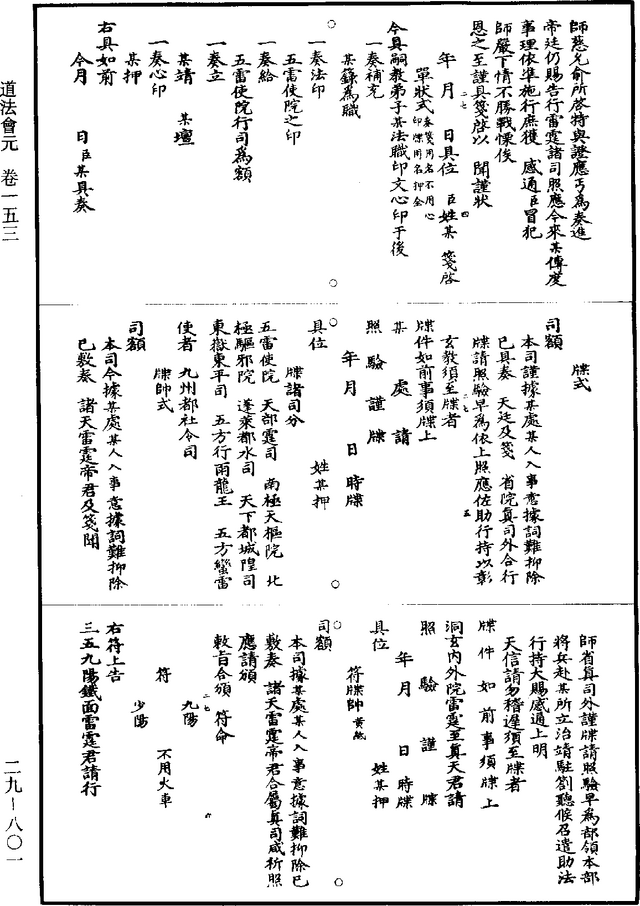 道法會元　卷一五三
二九-八〇一
師慈允俞所啓持與證應丐為奏進
帝廷仍賜告行雷霆諸司照應今來某傳度
事理依準施行庶獲　感通臣冒犯
師嚴下情不勝戰慄俟
恩之至謹具箋啓以　聞謹狀
年　月　日具位　臣姓某　箋啓
單狀式印牒用名押全奏箋用名不用心
今具嗣教弟子某法職印文心印于後
一奏補充
某籙為職
一奏法印
五雷使院之印
一奏給
五雷使院行司為額
一奏立
某靖　某壇
一奏心印
某押
右具如前
今月　日臣某具奏
牒式
司額
本司謹據某處某人入事意據詞難抑除
已具奏　天廷及箋　省院真司外合行
牒請照驗早為依上照應佐助行持以彰
玄教須至牒者
牒件如前事須牒上
某　處　請
照　驗　謹　牒
年　月　日　時牒
具位　姓某押
牒諸司分
五雷使院　天部霆司　南極天樞院　北
極驅邪院　蓬萊都水司　天下都城隍司
東嶽東平司　五方行雨龍王　五方蠻雷
使者　九州都社令司
牒帥式
司額
本司今據某處某人入事意據詞難抑除
已敷奏　諸天雷霆帝君及箋聞
師省真司外謹牒請照驗早為部領本部
將兵赴某所立治靖駐劄聽候召遣助法
行持大賜感通上明
天信請勿稽遲須至牒者
牒　件　如　前　事　須　牒　上
洞玄內外院雷霆至真天君請
照　驗　謹　牒
年　月　日　時牒
具位　姓某押
符牒帥黃紙
司額
本司據某處某人入事意據詞難抑除已
敷奏　諸天雷霆帝君合屬真司咸祈照
應請頒
敕旨合頒　符命
九陽
符　不用火車
少陽
右符上告
三五九陽鐵面雷霆君請行